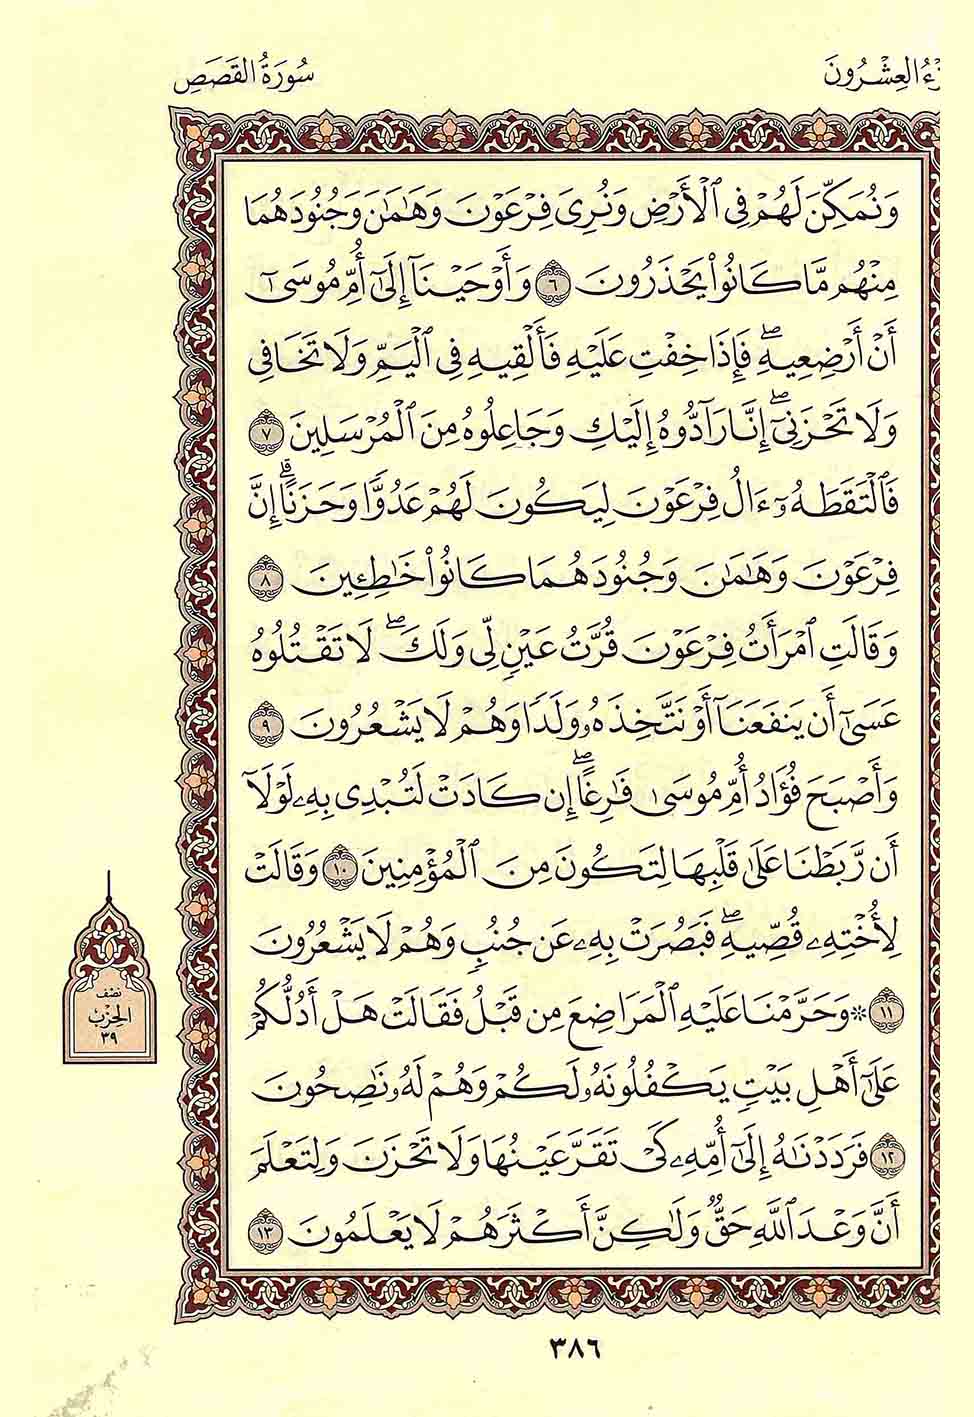 ـزءُ العِشْرُونَ
سُورَةُ القَصَصِ
وَنُمَكِّنَ لَهُمْ فِي ٱلْأَرْضِ وَنُرِيَ فِرْعَوْنَ وَهَٰمَٰنَ وَجُنُودَهُمَا
مِنْهُم مَّا كَانُوا۟ يَحْذَرُونَ ٦ وَأَوْحَيْنَآ إِلَىٰٓ أُمِّ مُوسَىٰٓ
أَنْ أَرْضِعِيهِ ۖ فَإِذَا خِفْتِ عَلَيْهِ فَأَلْقِيهِ فِي ٱلْيَمِّ وَلَا تَخَافِي
وَلَا تَحْزَنِيٓ ۖ إِنَّا رَآدُّوهُ إِلَيْكِ وَجَاعِلُوهُ مِنَ ٱلْمُرْسَلِينَ ٧
فَٱلْتَقَطَهُۥٓ ءَالُ فِرْعَوْنَ لِيَكُونَ لَهُمْ عَدُوًّا وَحَزَنًا ۗ إِنَّ
فِرْعَوْنَ وَهَٰمَٰنَ وَجُنُودَهُمَا كَانُوا۟ خَٰطِـِٔينَ ٨
وَقَالَتِ ٱمْرَأَتُ فِرْعَوْنَ قُرَّتُ عَيْنٍ لِّي وَلَكَ ۖ لَا تَقْتُلُوهُ
عَسَىٰٓ أَن يَنفَعَنَآ أَوْ نَتَّخِذَهُۥ وَلَدًا وَهُمْ لَا يَشْعُرُونَ ٩
وَأَصْبَحَ فُؤَادُ أُمِّ مُوسَىٰ فَٰرِغًا ۖ إِن كَادَتْ لَتُبْدِي بِهِۦ لَوْلَآ
أَن رَّبَطْنَا عَلَىٰ قَلْبِهَا لِتَكُونَ مِنَ ٱلْمُؤْمِنِينَ ١٠ وَقَالَتْ
لِأُخْتِهِۦ قُصِّيهِ ۖ فَبَصُرَتْ بِهِۦ عَن جُنُبٍ وَهُمْ لَا يَشْعُرُونَ
١١ ۞ وَحَرَّمْنَا عَلَيْهِ ٱلْمَرَاضِعَ مِن قَبْلُ فَقَالَتْ هَلْ أَدُلُّكُمْ
عَلَىٰٓ أَهْلِ بَيْتٍ يَكْفُلُونَهُۥ لَكُمْ وَهُمْ لَهُۥ نَٰصِحُونَ
١٢ فَرَدَدْنَٰهُ إِلَىٰٓ أُمِّهِۦ كَيْ تَقَرَّ عَيْنُهَا وَلَا تَحْزَنَ وَلِتَعْلَمَ
أَنَّ وَعْدَ ٱللَّهِ حَقٌّ وَلَٰكِنَّ أَكْثَرَهُمْ لَا يَعْلَمُونَ ١٣
نصْف
الحِزْب
٣٩
٣٨٦